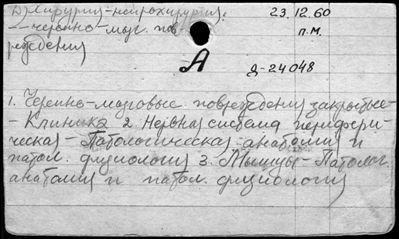 Д) Хирургия-нейрохирургия.
- черепно-мозг. пов-
реждения
23.12.60
п.м.
А
Д-24048
1. Черепно-мозговые повреждения закрытые-
- Клиника 2. Нервная система перифери-
ческая - Патологическая анатомия и
патол. физиология 3. Мышцы - Патолог.
анатомия и патол. физиология